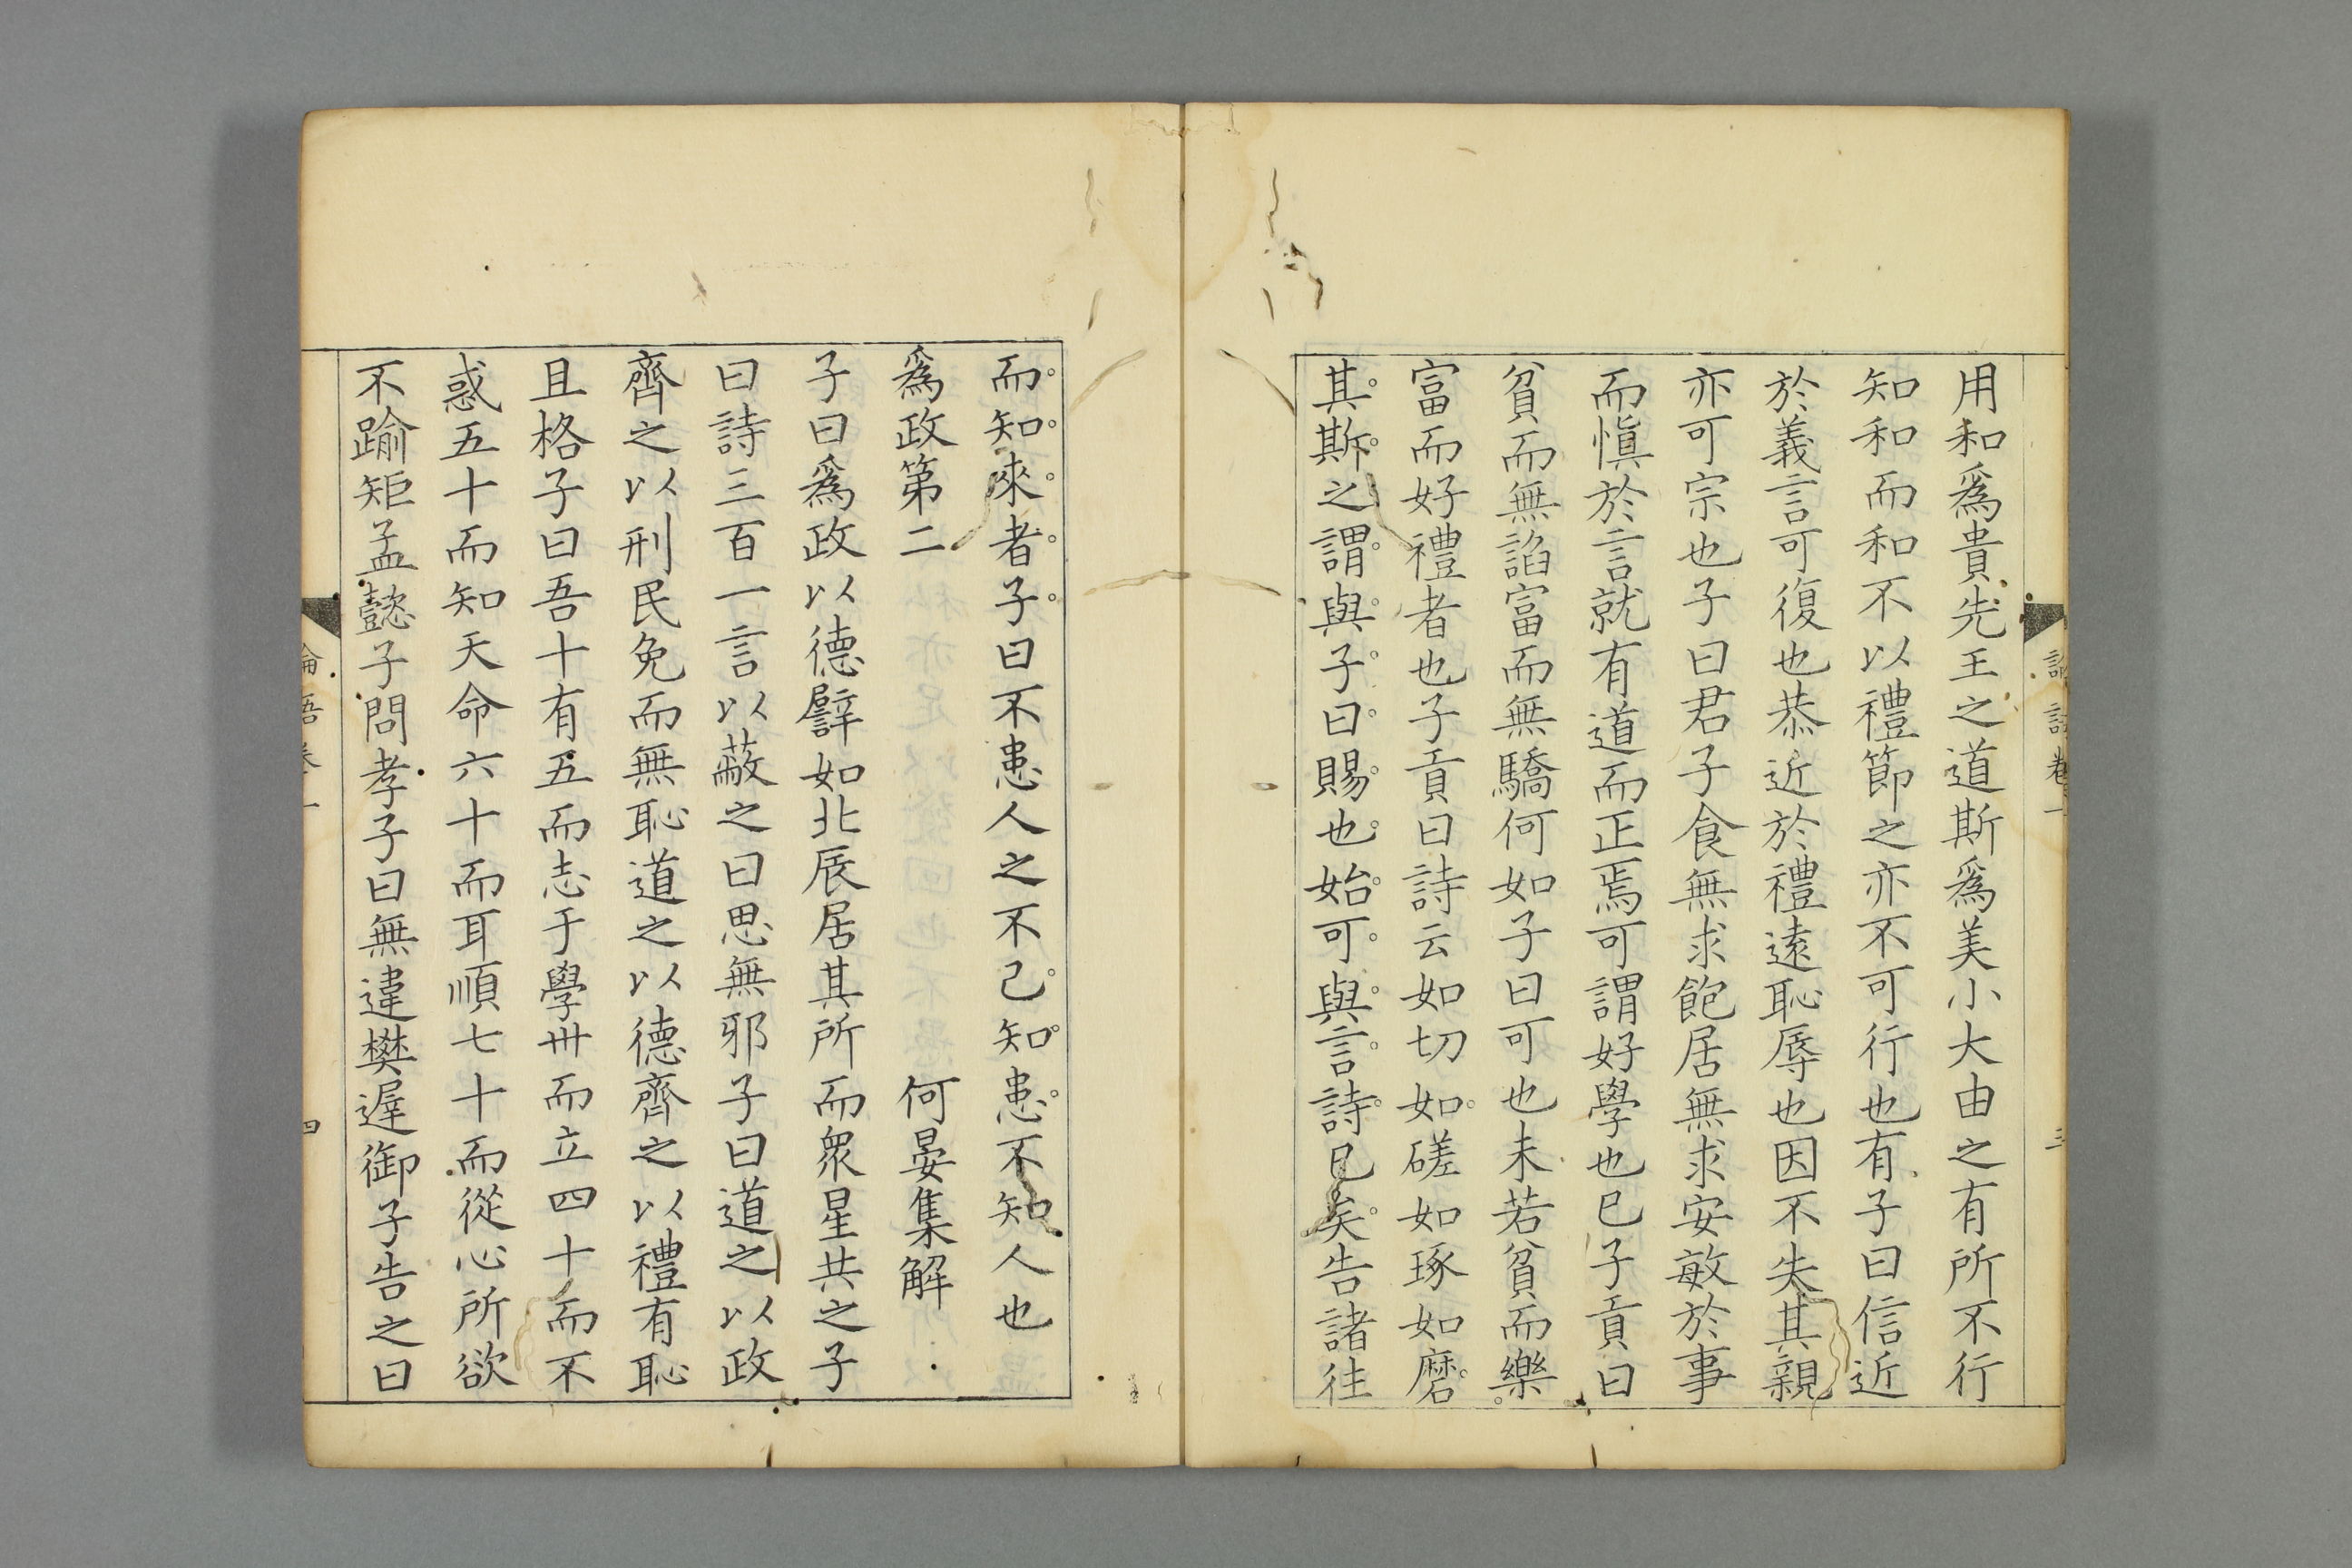 論語卷一 三
用和爲貴先王之道斯爲美小大由之有所不行
知和而和不以禮節之亦不可行也有子曰信近
於義言可復也恭近於禮遠恥辱也因不失其親
亦可宗也子曰君子食無求飽居無求安敏於事
而愼於言就有道而正焉可謂好學也巳子貢曰
貧而無諂富而無驕何如子曰可也未若貧而樂
富而好禮者也子貢曰詩云如切如磋如琢如磨
其斯之謂與子曰賜也始可與言詩巳矣告諸往
而知來者子曰不患人之不己知患不知人也
爲政第二 何晏集解
子曰爲政以德譬如北辰居其所而衆星共之子
曰詩三百一言以蔽之曰思無邪子曰道之以政
齊之以刑民免而無恥道之以德齊之以禮有恥
且格子曰吾十有五而志于學卅而立四十而不
惑五十而知天命六十而耳順七十而從心所欲
不踰矩孟懿子問孝子曰無違樊遲御子告之曰
論語卷一 四